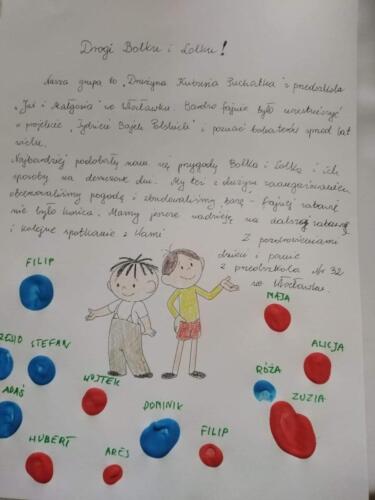 Drogi Bolku i Lolku!
Nasza grupa to „Drużyna Kubusia Puchatka" z przedszkola
„Jaś i Małgosia" we Włocławku. Bardzo fajnie było uczestniczyć
w projekcie „Tydzień Bajek Polskich" i poznać bohaterów sprzed lat
wielu.
Najbardziej podobały nam się przygody Bolka i Lolka i ich
sposoby na deszczowe dni. My też z dużym zaangażowaniem
obserwowaliśmy pogodę i zbudowaliśmy bazę - fajnej zabawy
nie było końca. Mamy jeszcze nadzieję na dalszą zabawę
i kolejne spotkanie z Wami
Z pozdrowieniami
dzieci i panie
z przedszkola Nr 32
we Włocławku.
FILIP
MAJA
STEFAN
ALICJA
WOJTEK
RÓŻA
ADAŚ
DOMINIK
ZUZIA
HUBERT
ARES
FILIP